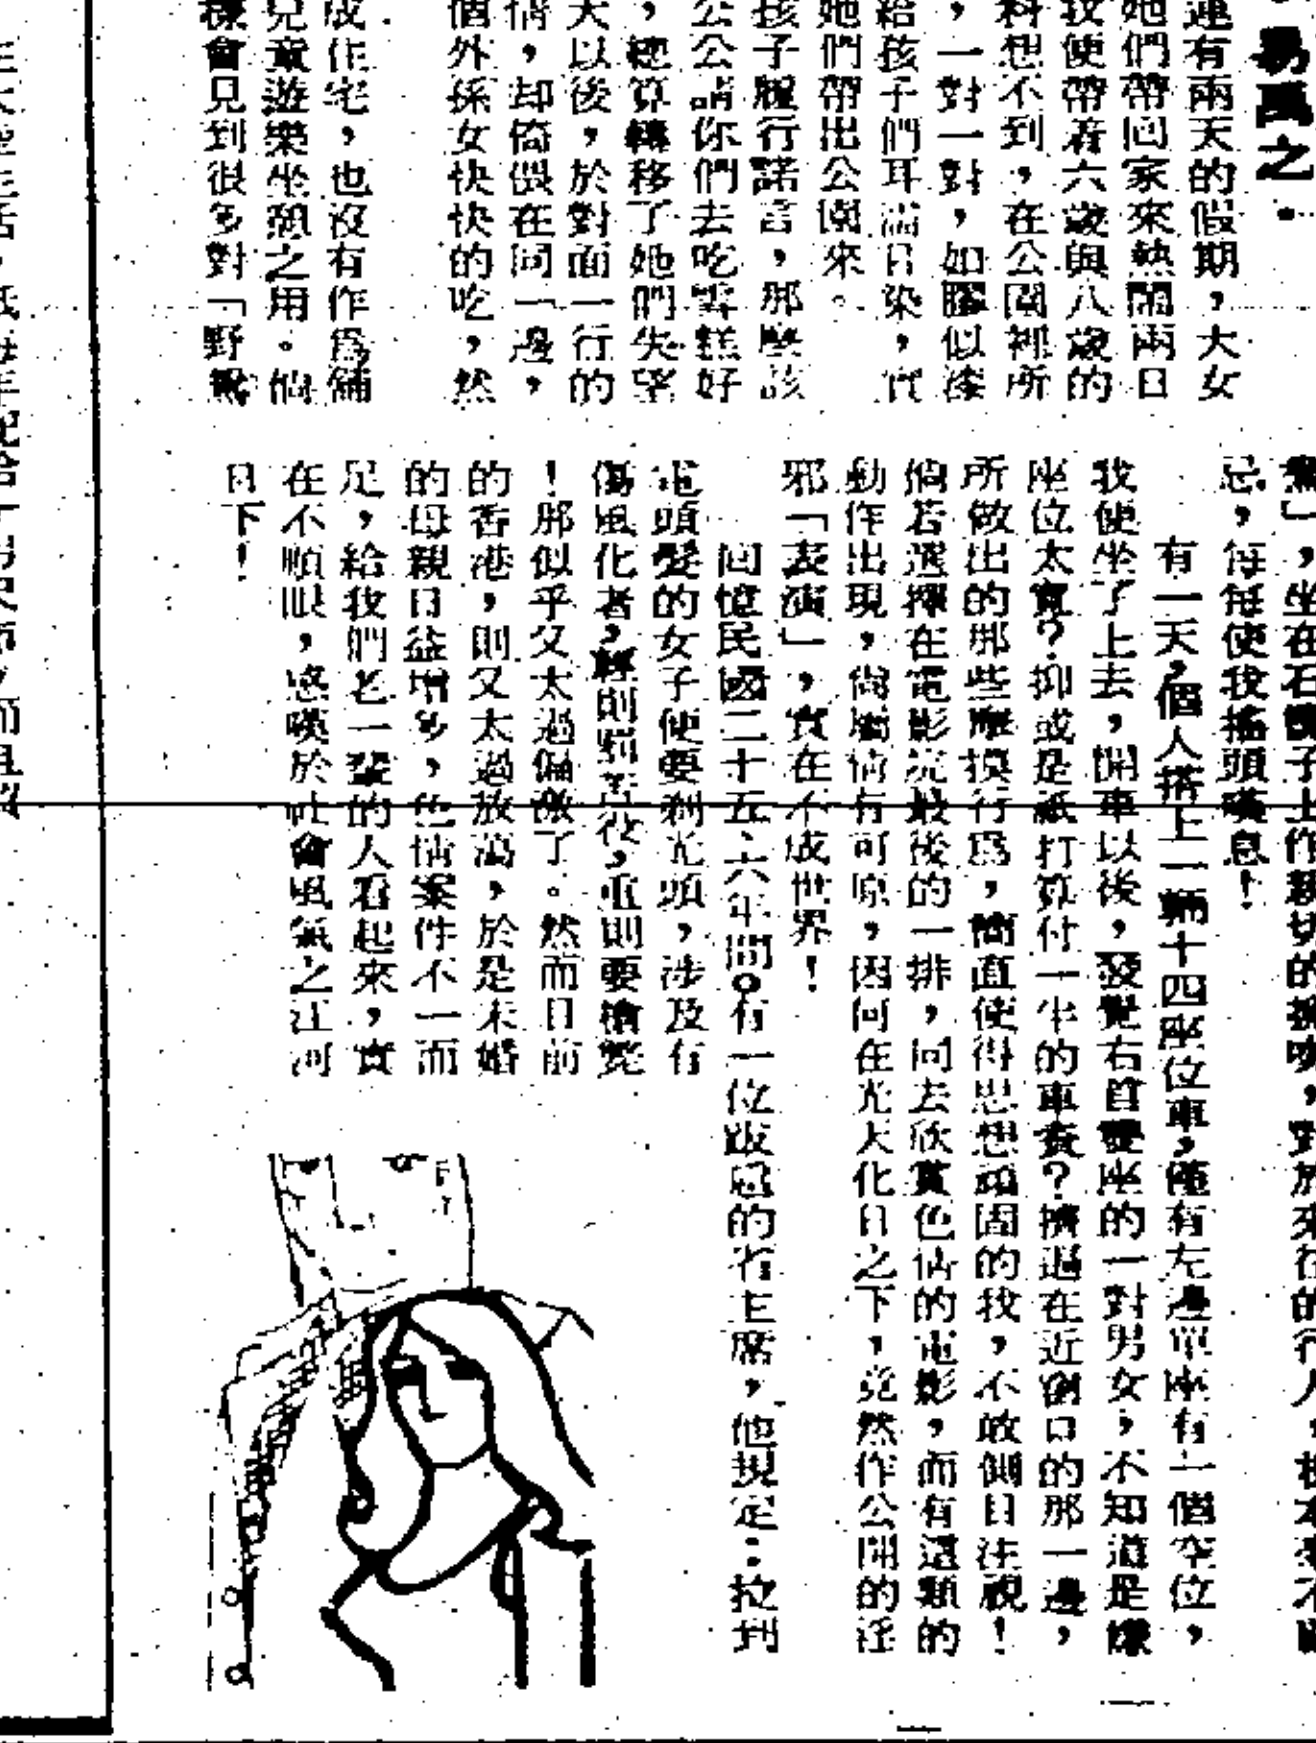 易禹之・
連有兩天的假期，大女
她們帶回家來熱鬧兩日
我便帶着六歲與八歲的
料想不到，在公園裡所
，一對一對，如膠似漆
給孩子們耳濡目染，實
她們帶出公園來。
孩子履行諾言，那麼該
公公請你們去吃雪糕好
，總算轉移了她們失望
大以後，於對面一行的
情，却倚偎在同一邊，
個外孫女快快的吃，然
成住宅，也沒有作爲舖
兒童遊樂坐憩之用。倘
樣會見到很多對「野鴛
鴦」，坐在石櫈子上作親切的擁吻，對於來往的行人，根本毫不顧
忌，每每使我搖頭嘆息！
有一天，個人搭上一輛十四座位車，僅有左邊單座有一個空位，
我便坐了上去，開車以後，發覺右首雙座的一對男女，不知道是嫌
座位太寬？抑或是祇打算付一半的車資？擠過在近窗口的那一邊，
所做出的那些摩摸行爲，簡直使得思想頑固的我，不敢側目注視！
倘若選擇在電影院最後的一排，同去欣賞色情的電影，而有這類的
動作出現，尚屬情有可原，因何在光天化日之下，竟然作公開的淫
邪「表演」，實在不成世界！
回憶民國二十五、六年間。有一位跋扈的省主席，他規定：拉到
電頭髮的女子便要剃光頭，涉及有
傷風化者，輕則罰苦役，重則要槍斃
！那似乎又太過偏激了。然而目前
的香港，則又太過放蕩，於是未婚
的母親日益增多，色情案件不一而
足，給我們老一輩的人看起來，實
在不順眼，感嘆於社會風氣之江河
日下！